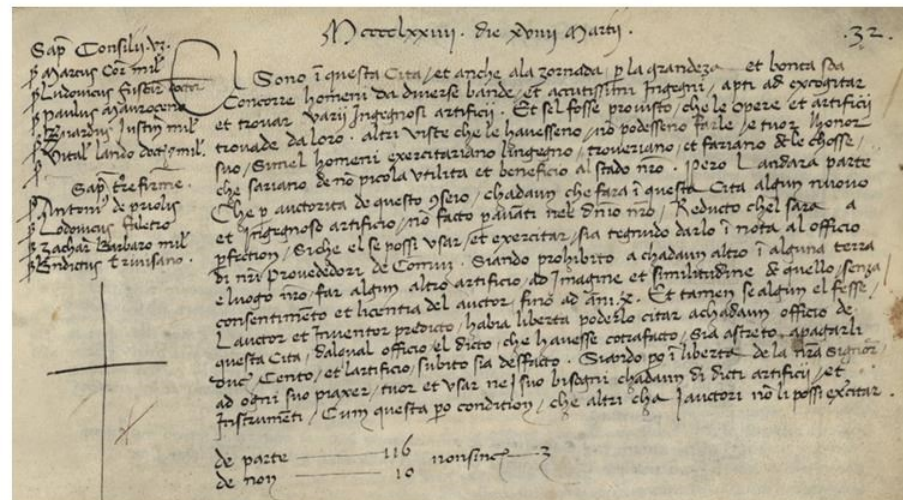 Mccccclxxiiii. die xviiij Martij.
.32.
Sap̃ Consilij. vz.
Marcus Cor̃ mil̃
Ludovicus fuscar̃ doctor
paulus mauroceno
Bñardus Justiñ mil̃
Vital̃ lando doct̃ ⁊ mil̃.
Sap̃ tr̃e firme.
Antoni᾽ de priolis
Lodovicus faletro
Zachar̃ Barbaro mil̃
Bñdictus trivisano.
El Sono ĩ questa Cita, et anche ala zornada, ꝑ la grandeza et bonta soa
Concorre homeni da diverse bande, et acutissimi Ingegni, apti ad excogitar
et trovar varij Ingegnosi artificij. Et sel fosse provisto, che le opere et artificij
trovade da loro, altri viste che le havesseno, nõ podesseno farle, e tuor l honor
suo, Simel homeni exercitariano lingegno, troveriano, et fariano de le chosse,
che sariano de nõ picola utilita et beneficio al stado nr̃o. Pero L andara parte
Che ꝑ auctorita de questo ꝯseio, chadaun che fara ĩ questa Cita algun nuovo
et Ingegnoso artificio, nõ facto ꝑ avãti nel dñio nr̃o, Reducto chel sara a
ꝑfection, Siche el se possi usar, et exercitar, sia tegnudo darlo ĩ nota al officio
di nr̃i provededori de Comun. Siando prohibito a chadaun altro ĩ alguna terra
e luogo nr̃o, far algun altro artificio, ad Imagine et similitudine de quello, senza
consentimẽto et licentia del auctor, fino ad ãni .x. Et tamen se algun el fesse,
L auctor et Inventor predicto, habia liberta poderlo citar a chadaun officio de
questa Cita, dal qual officio, el dicto, che havesse cõtrafacto, Sia astreto, apagarli
duc̃ Cento, et l artificio, subito sia deffacto. Siando ꝑo ĩ liberta de la nr̃a Signor̃
ad ogni suo piaxer, tuor et usar ne i suo bisogni chadaun di dicti artificij, et
Instrumẽti, Cum questa ꝑo condition, che altri cha i auctori nõ li possi exercitar.
de parte 116
de non 10
non sinč 3